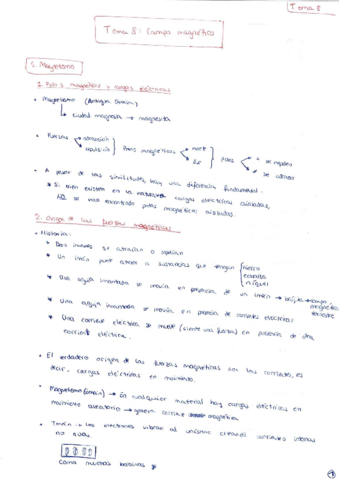 Tema 8
Tema 8: Campo magnético
1. Magnetismo
1. Polos magnéticos y cargas eléctricas
• Magnetismo (Antigua Grecia)
↳ ciudad magnesia → magnetita
• Fuerzas atracción repulsión Polos magnéticos norte sur Polos = se repelen ≠ se atraen
• A pesar de las similitudes, hay una diferencia fundamental.
* Si bien existen en la naturaleza cargas eléctricas aisladas,
NO se han encontrado polos magnéticos aislados.
2. Origen de las fuerzas magnéticas
• Historia:
* Dos imanes se atraían o repelían
* Un imán puede atraer a sustancias que tengan hierro cobalto níquel
* Una aguja imantada se movía en presencia de un imán → brújula → campo magnético terrestre
* Una aguja imantada se movía en presencia de corrientes eléctricas
* Una corriente eléctrica se mueve (siente una fuerza) en presencia de otra
corriente eléctrica.
• El verdadero origen de las fuerzas magnéticas son las corrientes, es
decir, cargas eléctricas en movimiento.
• Magnetismo → En cualquier material hay cargas eléctricas en
movimiento aleatorio → genera corriente magnética.
• Imán → los electrones vibran al unísono creando corrientes internas
no nulas.
como muchas bobinas
1